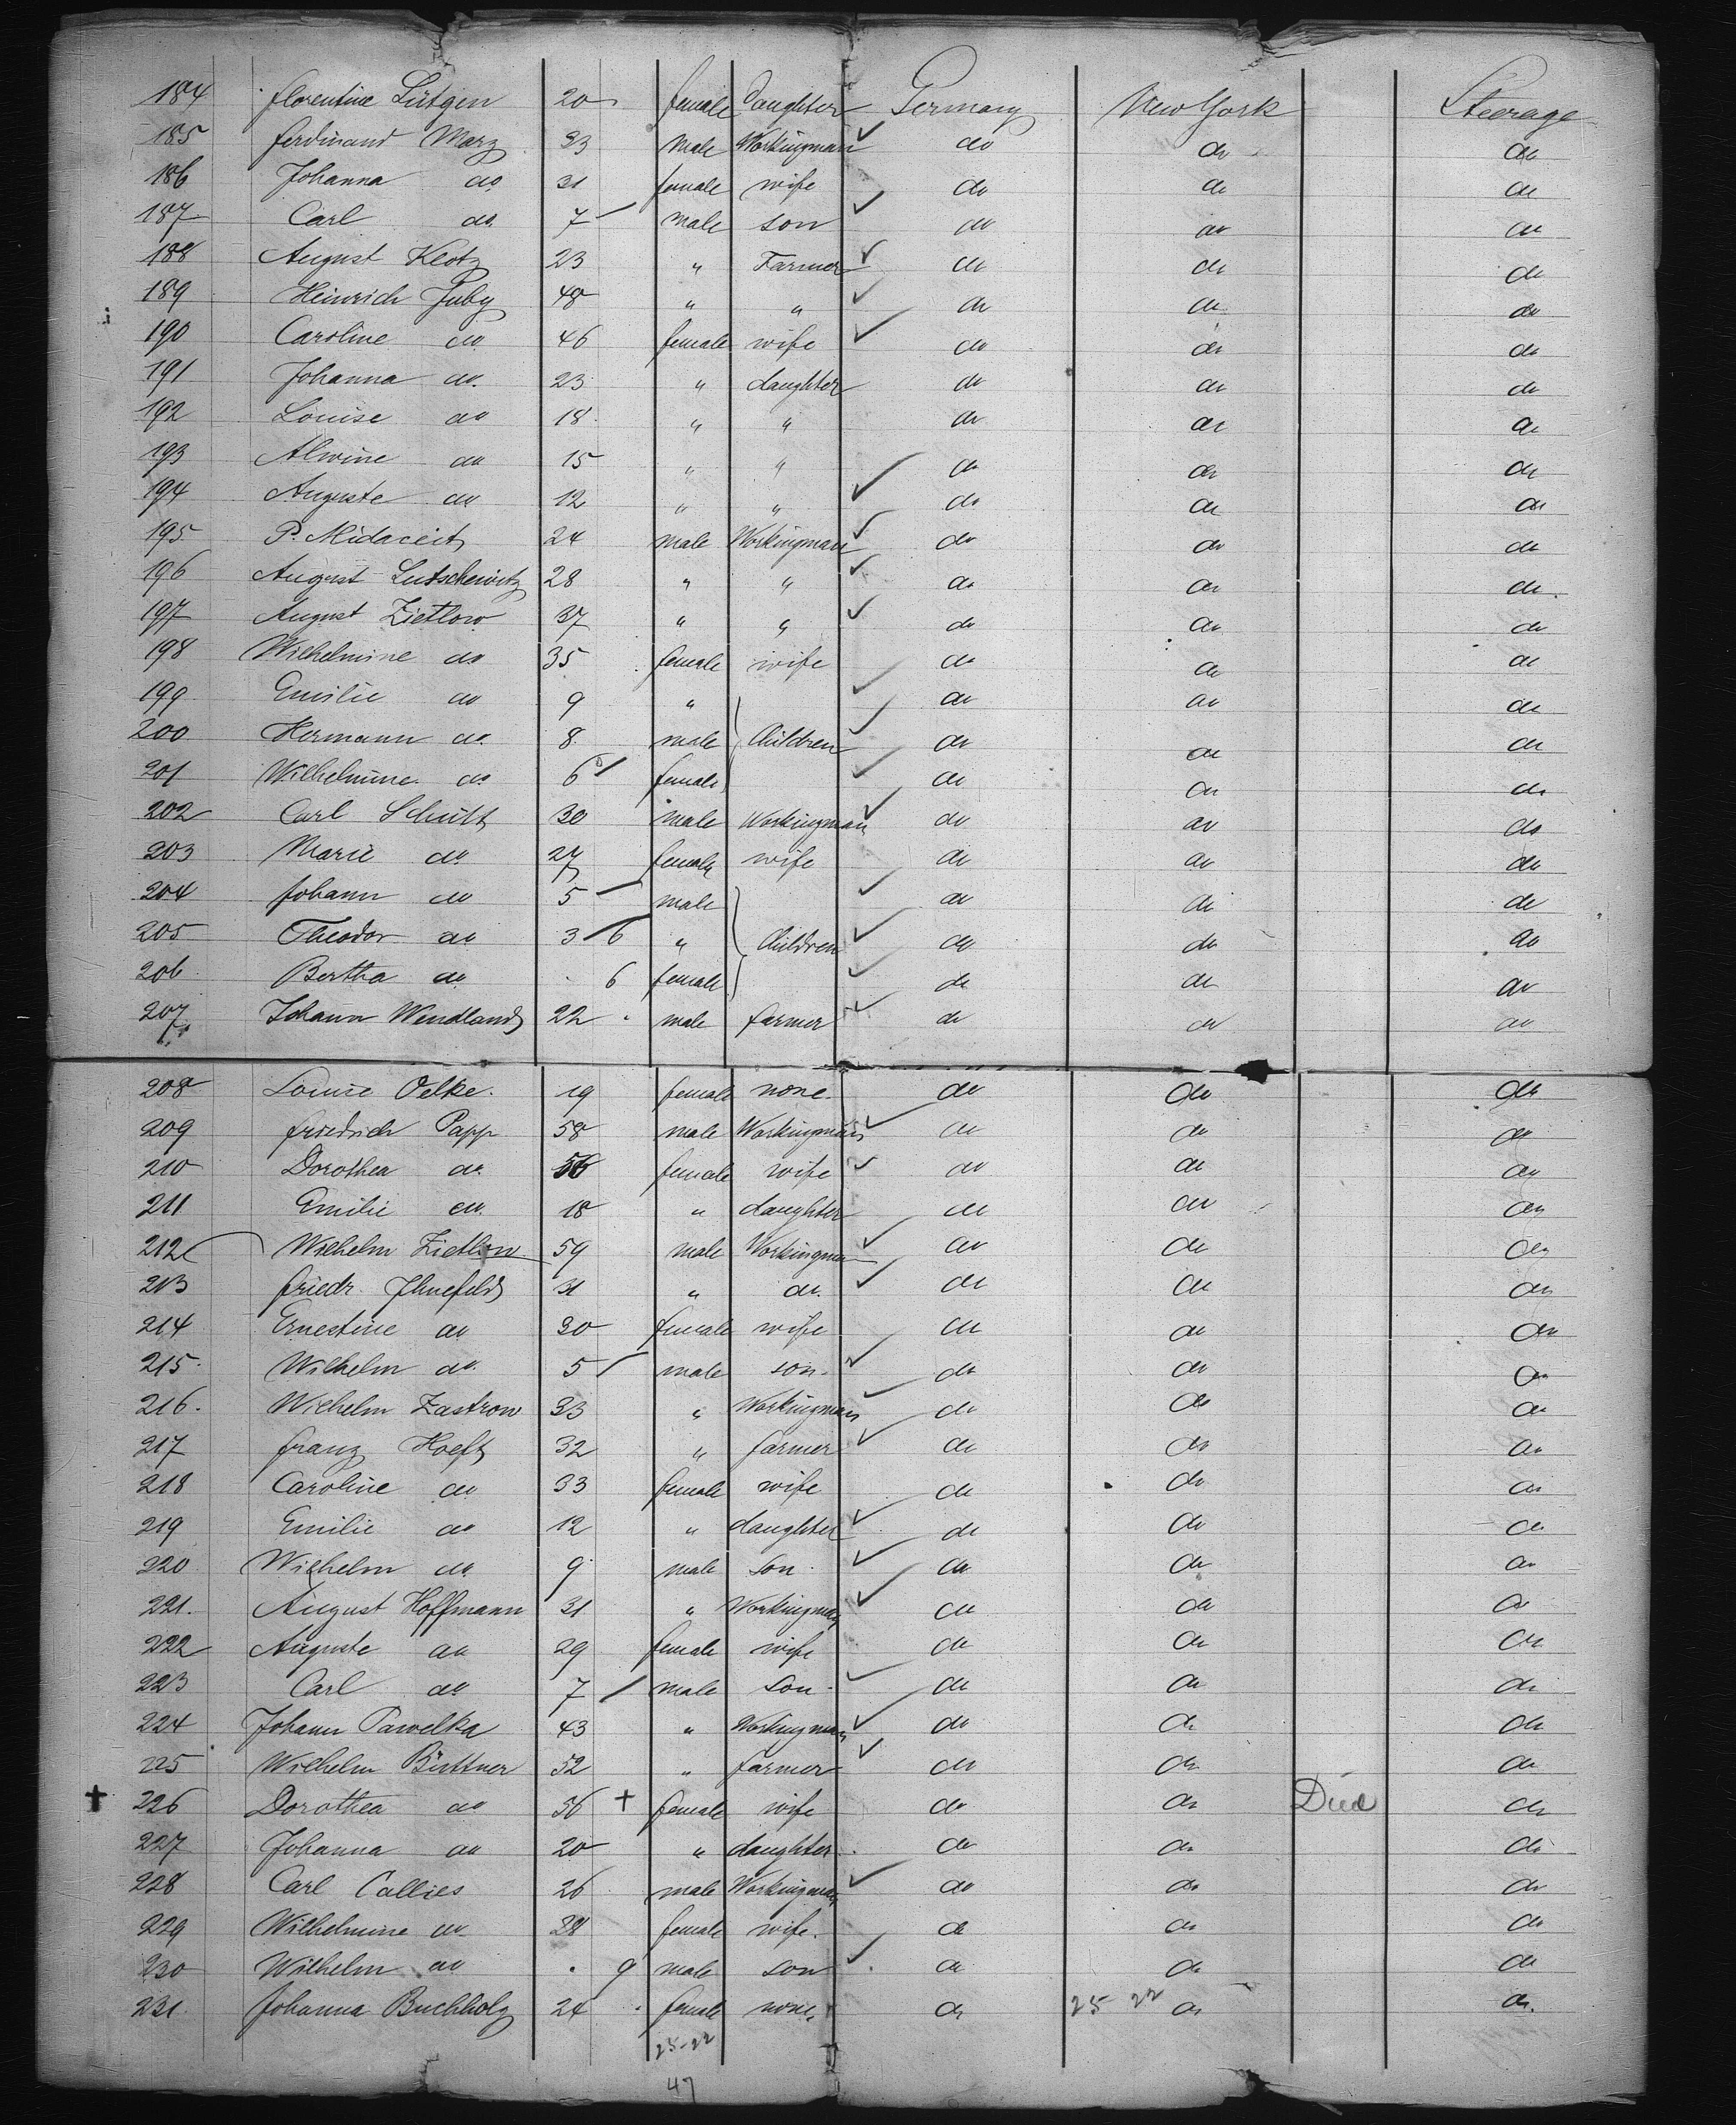 184 Florentine Lütgen 20 female daughter Germany New York Steerage
185 Ferdinand Marz 33 male Workingman do do do
186 Johanna do 31 female wife do do do
187 Carl do 7 male son do do do
188 August Klotz 23 " Farmer do do do
189 Heinrich Juby 48 " " do do do
190 Caroline do 46 female wife do do do
191 Johanna do. 23 " daughter do do do
192 Louise do 18 " " do do do
193 Alwine do 15 " " do do do
194 Auguste do 12 " " do do do
195 P. 24 male Workingman do do do
196 August Lutschewitz 28 " " do do do.
197 August Zietlow 37 " " do do do
198 Wilhelmine do 35 female wife do do do
199 Emilie do 9 " do do do
200 Hermann do. 8 male Children do do do
201 Wilhelmine do 6 female do do do
202 Carl Schütt 30 male Workingman do do do
203 Marie do 27 female wife do do do
204 Johann do 5 male do do do
205 Theodor do 3 6 " Children do do do
206 Bertha do 6 female do do do
207 Johann Wendland 22 male farmer do do do
208 Louise Oelke. 19 female none. do do do
209 Friedrich Papp 58 male Workingman do do do
210 Dorothea do. 56 female wife do do do
211 Emilie do. 18 " daughter do do do
212 Wilhelm Zietlow 59 male Workingman do do do
213 Friedr. 31 " do. do do do
214 Ernestine do 30 female wife do do do
215. Wilhelm do. 5 male son. do do do
216. Wilhelm Zastrow 33 " Workingman do do do
217 Franz Hoeft 32 " farmer do do do
218 Caroline do 33 female wife do do do
219 Emilie do 12 " daughter do do do
220 Wilhelm do. 9 male son. do do do
221. August Hoffmann 31 " Workingman do do do
222 Auguste do 29 female wife do do do
223 Carl do 7 male son. do do do
224 Johann Pawelka 43 " Workingman do do do
225 Wilhelm Büttner 52 " farmer do do do
+ 226 Dorothea do 56 + female wife do do Died do
227 Johanna do 20 " daughter. do do do
228 Carl Callies 26 male Workingman do do do
229 Wilhelmine do. 28 female wife. do do do
230 Wilhelm do 9 male son do do do
231. Johanna Buchholz 24 female none. do 25 22 do do.
25-22
47